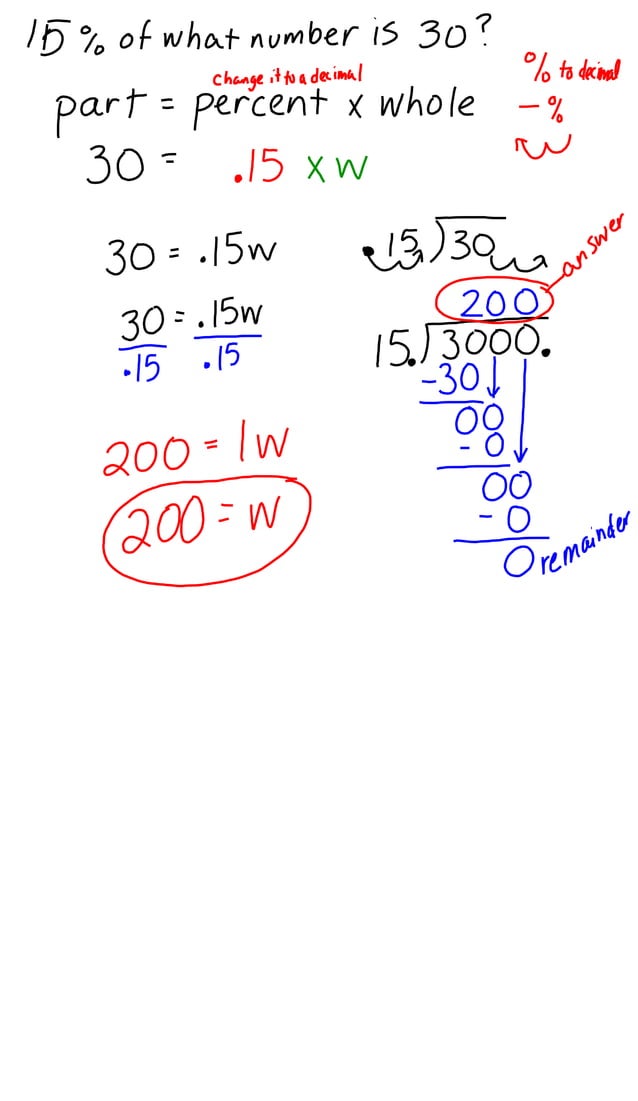 15% of what number is 30?
change it to a decimal
% to decimal
part = percent x whole
- %
30 = .15 x w
30 = .15w
.15)30
answer
200
30 = .15w
.15 .15
15.)3000.
-30
00
- 0
200 = 1w
00
200 = w
- 0
0 remainder